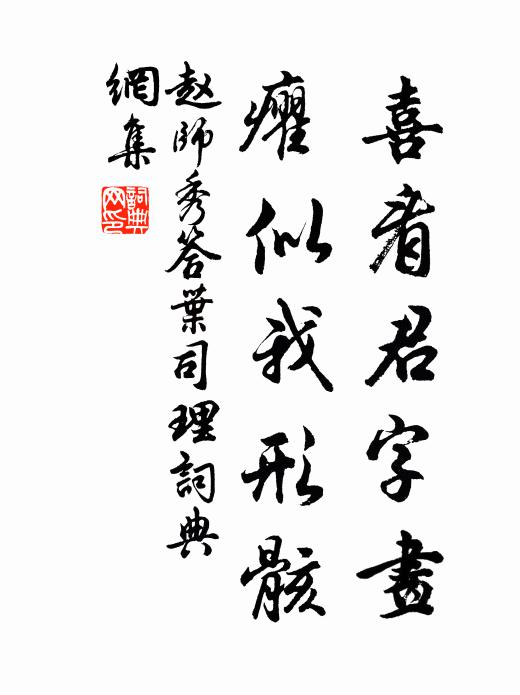 喜看君字畫
癯似我形骸
赵師秀答葉司理詞典
網集
詞典
网印